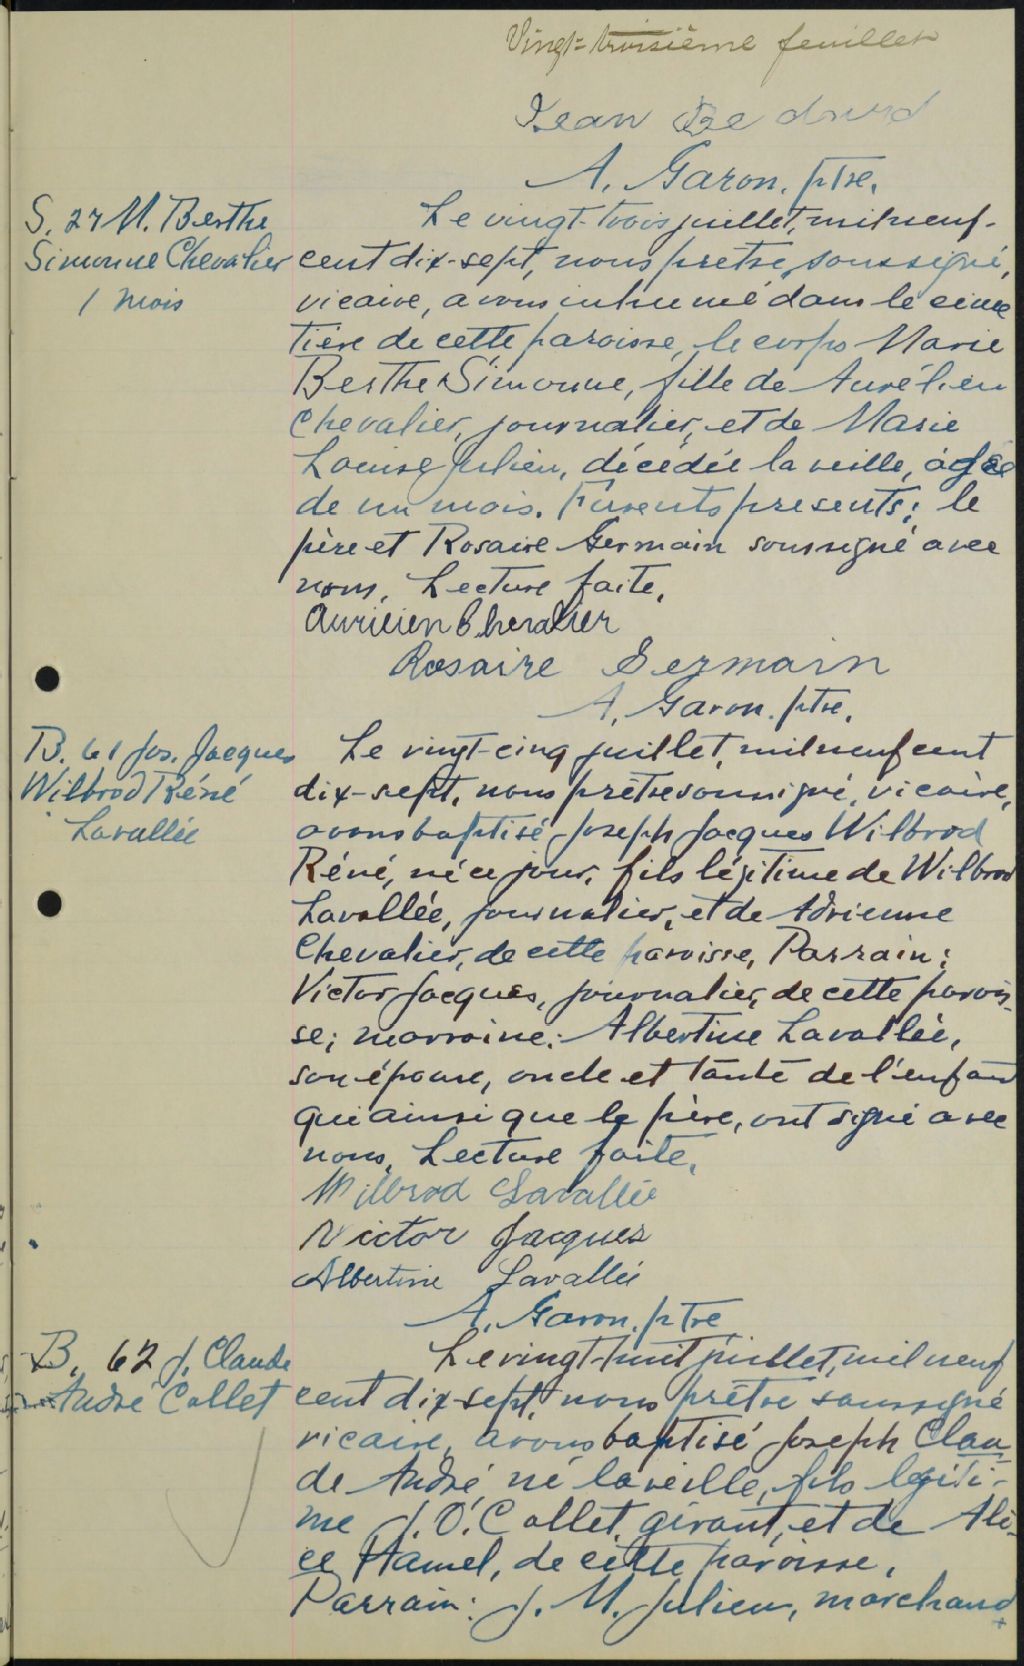 Vingt-troisième feuillet
Jean Bedard
A. Garon, ptre.
S. 27 M. Berthe
Simonne Chevalier
1 mois
Le vingt-trois juillet, mil neuf-
cent dix-sept, nous prêtre, soussigné,
vicaire, avons inhumé dans le cime
tière de cette paroisse, le corps Marie
Berthe Simonne, fille de Aurélien
Chevalier, journalier, et de Marie
Louise Julien, décédée la veille, agée
de un mois. Furent presents: le
père et Rosaire Germain soussigné avec
nous. Lecture faite.
Aurielien Chevalier
Rosaire Germain
A. Garon. ptre.
B. 61 Jos. Jacques
Wilbrod Réné
Lavallée
Le vingt-cinq juillet, mil neuf cent
dix-sept, nous prêtre soussigné, vicaire,
avons baptisé Joseph Jacques Wilbrod
Réné, né ce jour, fils légitime de Wilbrod
Lavallée, journalier, et de Adrienne
Chevalier, de cette paroisse, Parrain:
Victor Jacques, journalier, de cette parois-
se; marraine: Albertine Lavallée,
son épouse, oncle et tante de l'enfant
qui ainsi que le père, ont signé avec
nous. Lecture faite.
Wilbrod Lavallée
Victor Jacques
Albertine Lavallée
A. Garon. ptre
B. 62 J. Claude
André Collet
Le vingt-huit juillet, mil neuf
cent dix-sept, nous prêtre soussigné
vicaire, avons baptisé Joseph Clau
de André, né la veille, fils legiti-
me J. O. Collet, gérant, et de Ali-
ce Hamel, de cette paroisse.
Parrain: J. M. Julien, marchand